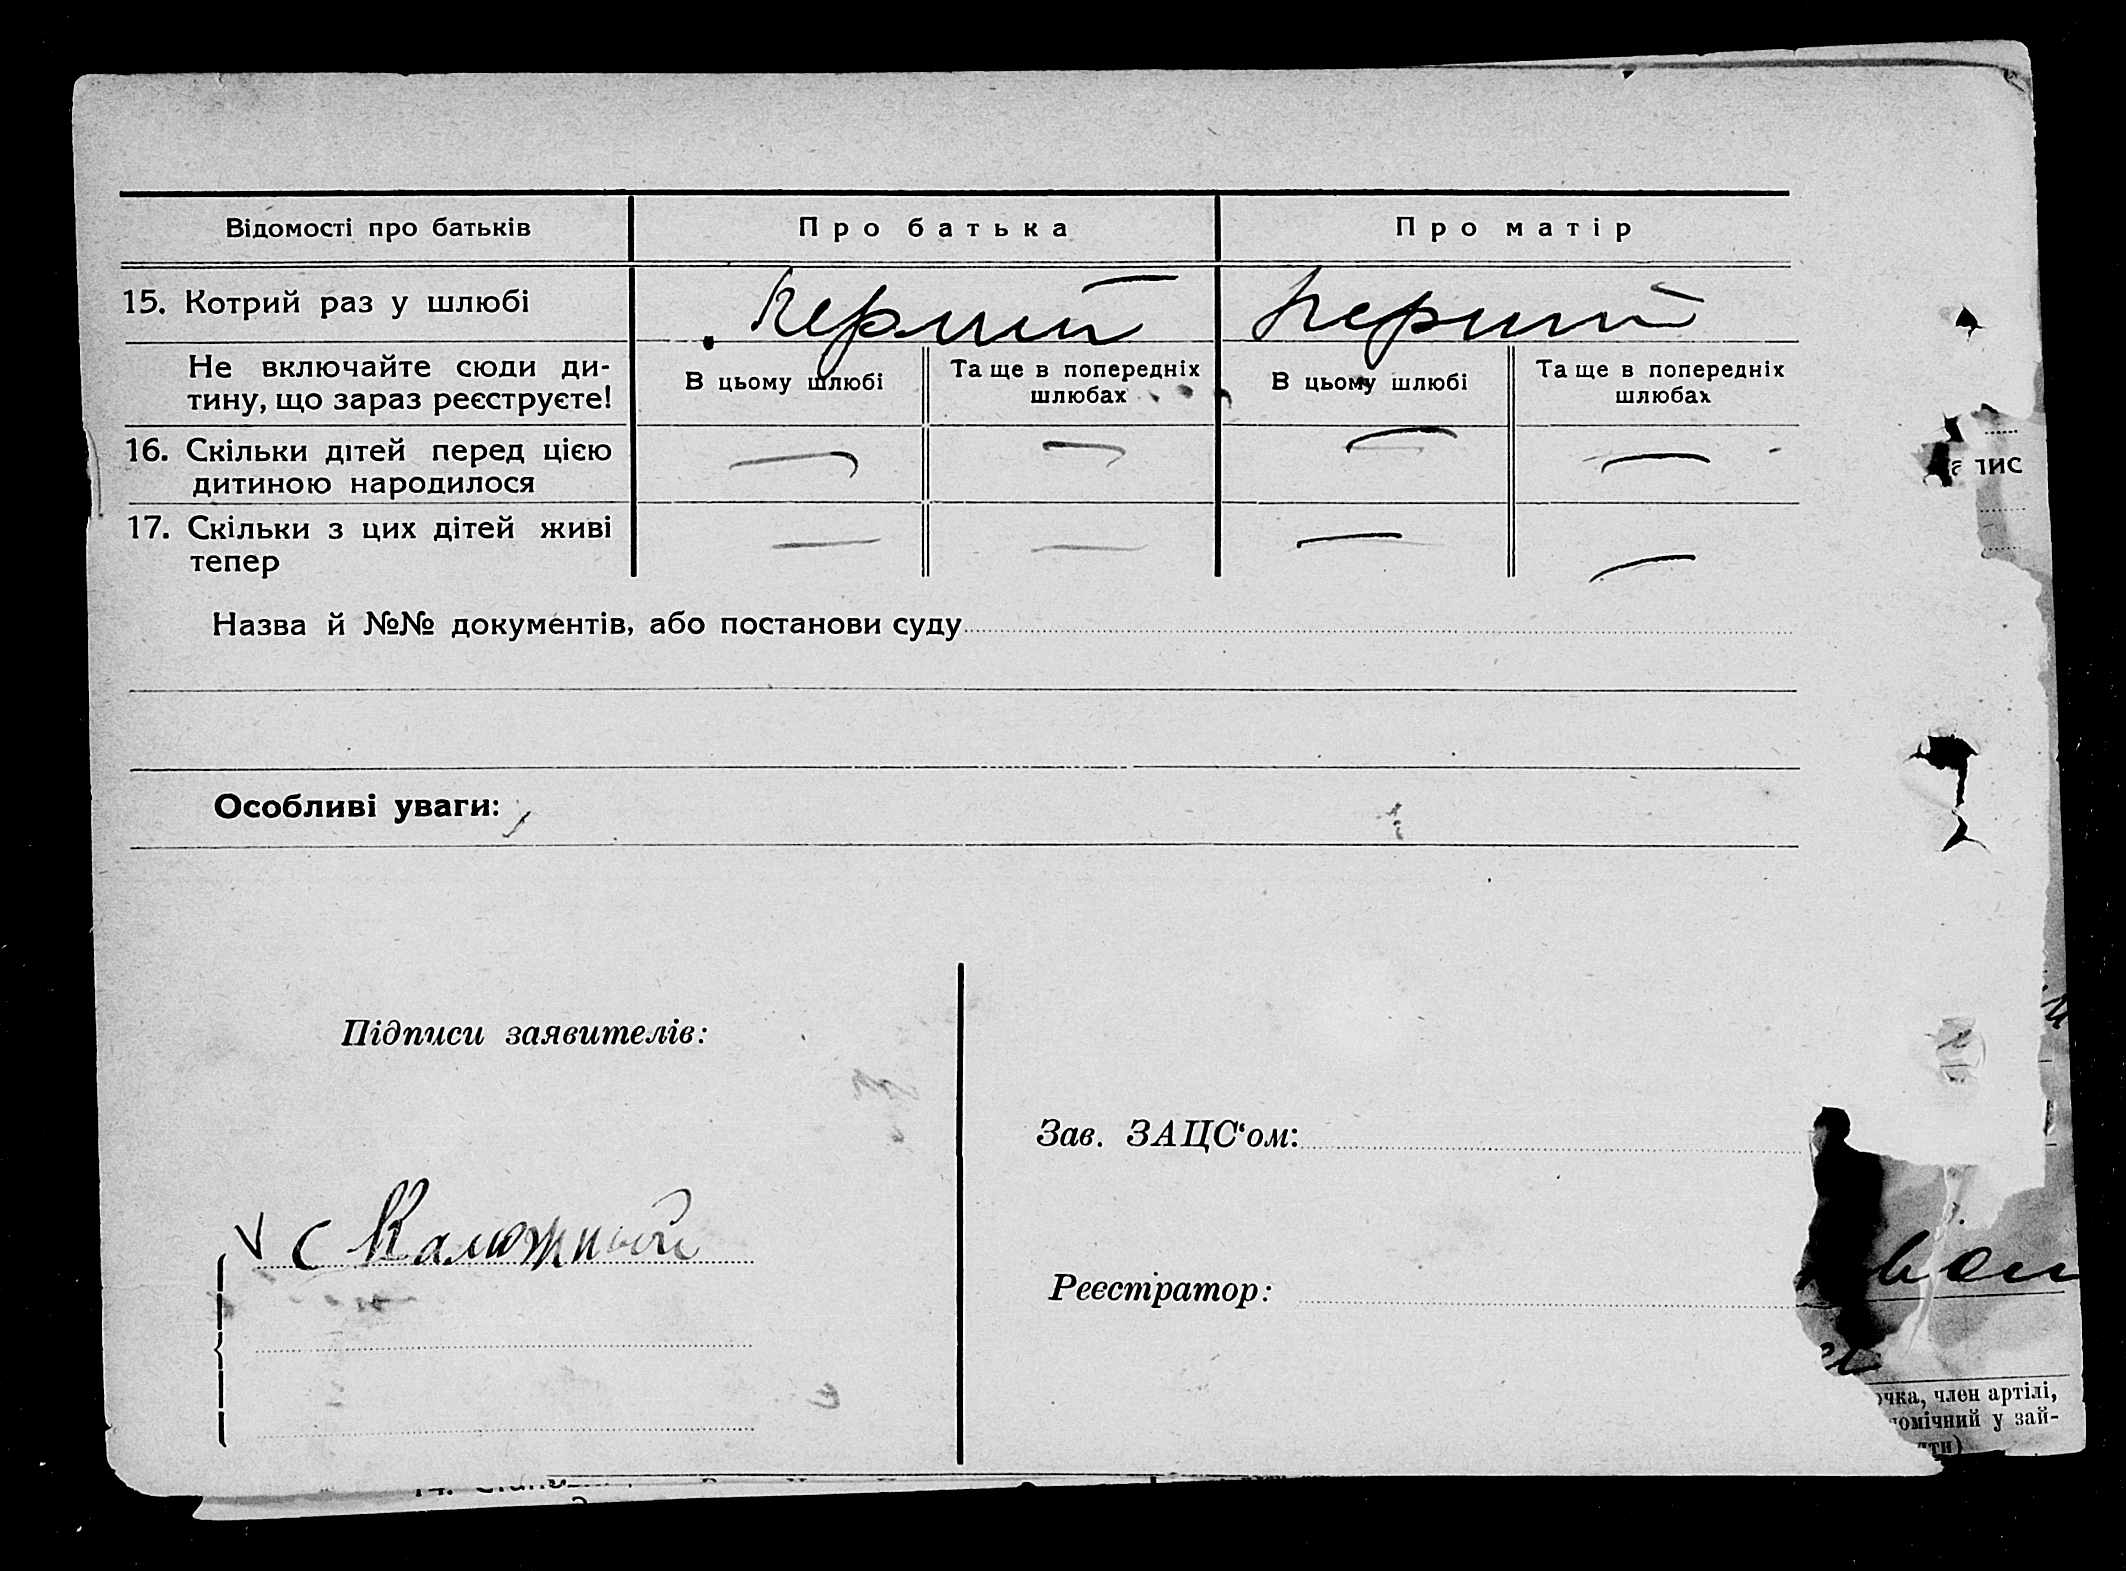 Відомості про батьків Про батька Про матір
15. Котрий раз у шлюбі Перший Перший
Не включайте сюди ди- В цьому шлюбі Та ще в попередніх В цьому шлюбі Та ще в попередніх
тину, що зараз реєструєте! шлюбах шлюбах
16. Скільки дітей перед цією — — — —
дитиною народилося
17. Скільки з цих дітей живі — — — —
тепер
Назва й №№ документів, або постанови суду
Особливі уваги:
Підписи заявителів:
Зав. ЗАЦС‘ом:
V С Калюжный
Реєстратор:
член артілі,
у зай-